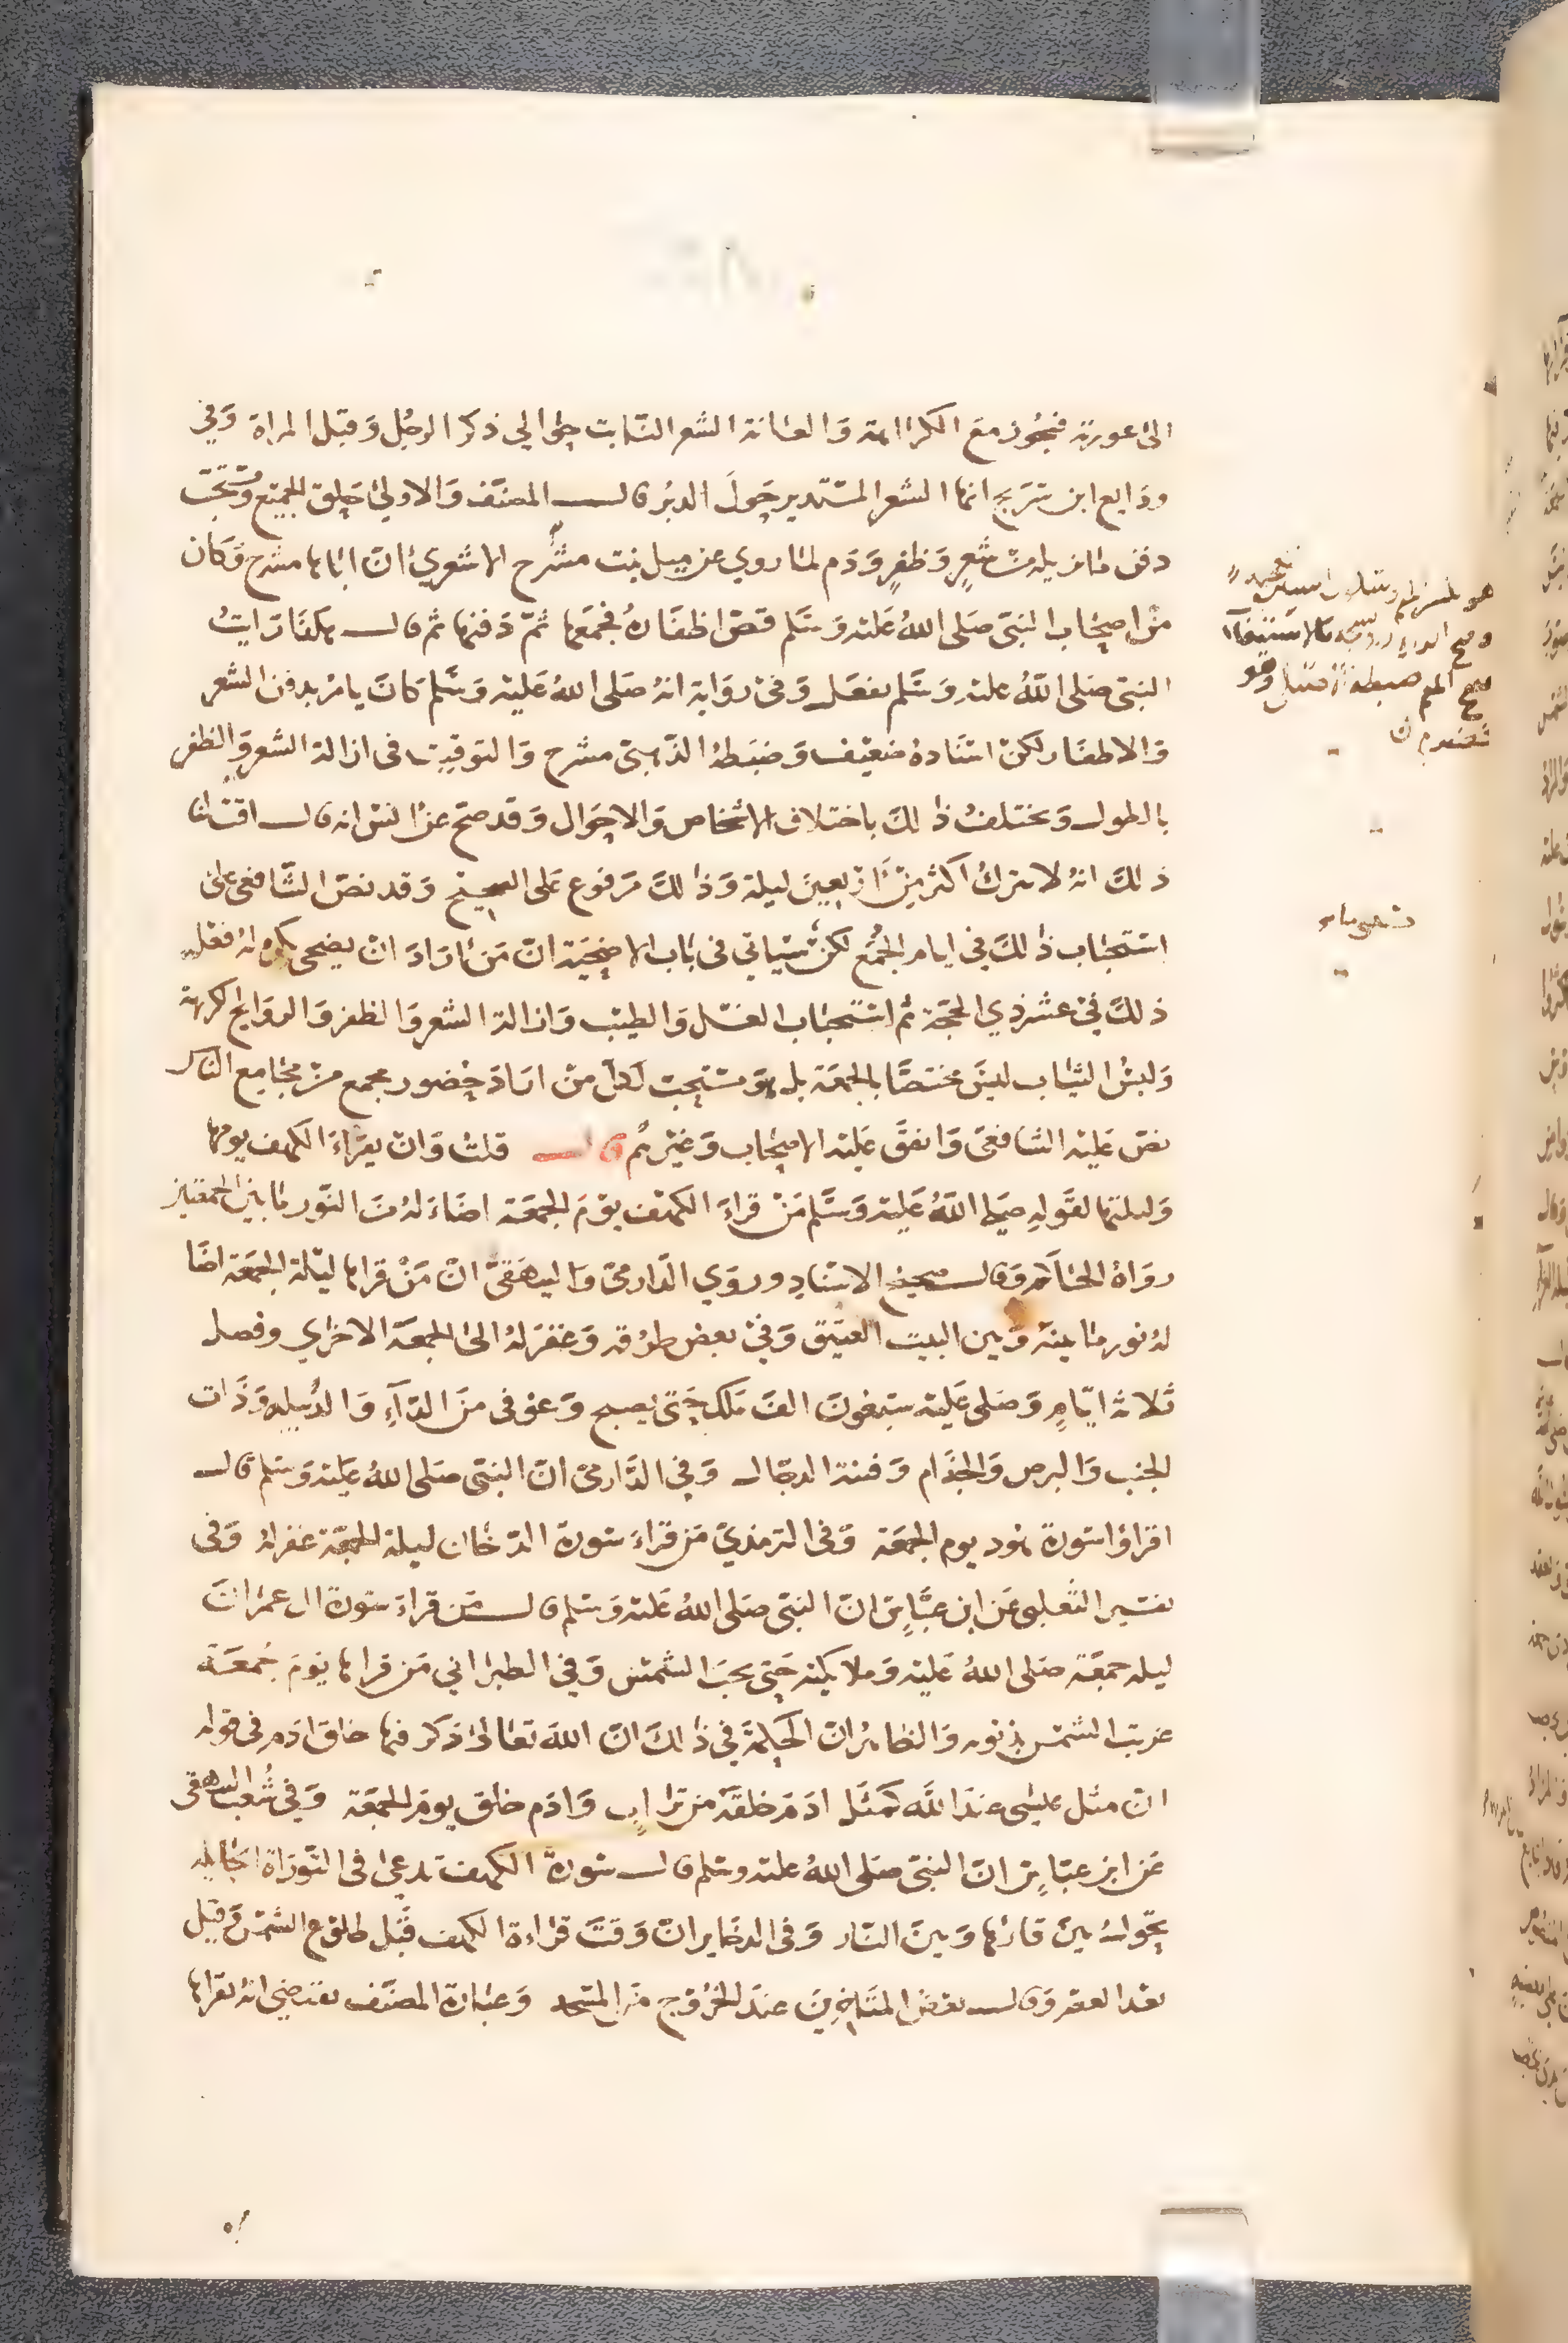 الى عورته فيجوز مع الكراهة وَالعانة الشعر النابت حوالي ذكر الرجل وَقبل المراة وَفي
ودايع ابن سُريج انها الشعر المستدير حَولَ الدبُر قال المصنّف وَالاولى حَلق الجميع وَيستحَبّ
دفن ما يزيله من شعرٍ وَظفرٍ وَدَم لما روي عن ميل بنت مشرح الاشعري انّ اباها مشرح وَكان
من اصحاب النبيّ صَلى اللهُ عَليْه وَسَلم قصّ اظفارهُ فجمَعها ثمّ دَفنها ثم قال هكذا رَايتُ
النبيّ صَلى اللهُ عليْهِ وَسَلم يفعَل وَفي روَاية انهُ صَلى اللهُ عَليْه وَسَلم كانَ يامرُ بدفن الشعر
وَالاظفار لكنْ اسْنَادهُ ضعيْف وَضبَطهُ الذّهبيّ مشرح وَالتوقيت في ازالة الشعر وَالظفر
بالطول وَيختلفُ ذلكَ باختلاف الاشخاص وَالاحوَال وَقد صَحّ عنْ انسْ انه قال اقت لنا
ذلكَ انهُ لا يترَكُ اكثر مِنْ اَرْبعينَ ليلة وَذلكَ مَرفوع عَلى الصحيح وَقد نصّ الشّافعي على
اسْتحبَاب ذلكَ في ايام الجُمُع لكنْ سَياتي في بَاب الاضحيَة انّ مَن ارَادَ انْ يضحى يكره لهُ فعل
ذلكَ فيْ عشر ذي الحجّة ثم اسْتحبَاب الغسْل وَالطيب وَازالة الشعر وَالظفر وَالروَايح الكريهة
وَلبسْ الثيَاب ليسَ مختصًّا بالجمعَة بل هوَ مسْتحب لكلّ منْ ارَادَ حُضور مجمع من مجَامع الناس
نصّ عَليْه الشافعيّ وَاتفقَ عَليْه الاصحَاب وَغيرهُم قال قلتُ وَانْ يقرَاءَ الكهف يومها
وَليلتها لقَولهِ صَلى اللهُ عَليْه وَسَلم مَنْ قراءَ الكهْف يوْمَ الجمعَة اضَاءَ لهُ منَ النّور مَا بين الجمعتين
روَاهُ الحَاكم وَقال صحيح الاسْنادِ وروَي الدّارميّ وَالبيهَقيّ انّ مَنْ قراها ليْلة الجمعَة اضَا
لهُ نور مَا بينهُ وَبين البيت العتيْق وَفيْ بعض طرُقه وَغفرَ لهُ الى الجمعَة الاخرَي وفضل
ثلاثة ايّامٍ وَصَلى عَليْه سَبعُونَ الف مَلك حَتىّ يُصبح وَعوفى منَ الدّاءِ وَالدُّبيلهِ وَذَات
الجنب وَالبرص وَالجذَام وَفتنة الدجّال وَفي الدَّارميْ انّ النبيّ صَلى اللهُ عَليْه وَسَلم قال
اقراؤا سُورَة هُود يوم الجمعَة وَفي الترمذيّ مَن قرَاءَ سُورة الدّخان ليلة الجمعَة غفر لهُ وَفي
تفسير الثّعلبى عَن ابن عبَّاسٍ انّ النبيّ صَلى اللهُ عَليْه وَسَلم قال مَن قراءَ سُورة ال عمرَانَ
ليله جمعَة صَلى اللهُ عَليْه وَملايكته حَتى تجبَ الشمسْ وَفي الطبرَاني مَن قراها يَومَ جُمعَة
غربت الشمسْ بذنوبه وَالظاهِرُ انّ الحكمةَ في ذلكَ انّ اللهَ تعَالى ذكر فيها خلقَ ادَم في قوله
انّ مثل عيسَى عندَ اللهِ كمثَل ادَمَ خلقهُ من ترابٍ وَادَم خلق يومَ الجمعَة وَفي شُعب البيهقى
عَن ابن عبّاسٍ انّ النبيّ صَلى اللهُ عليْه وسَلم قال سُورةُ الكهف تدعى في التّورَاة الحَايله
تحوّلُ بينَ قارئها وَبينَ النار وَفي الدخاير انّ وَقتَ قرَاءة الكهف قبْل طلوْع الشمسْ وَقيل
بعْد العصر وَقال بعْض المتَاخرينَ عندَ الخرُوْج من المسْجد وَعبَارة المصنّف تقتضي انهُ يقراها